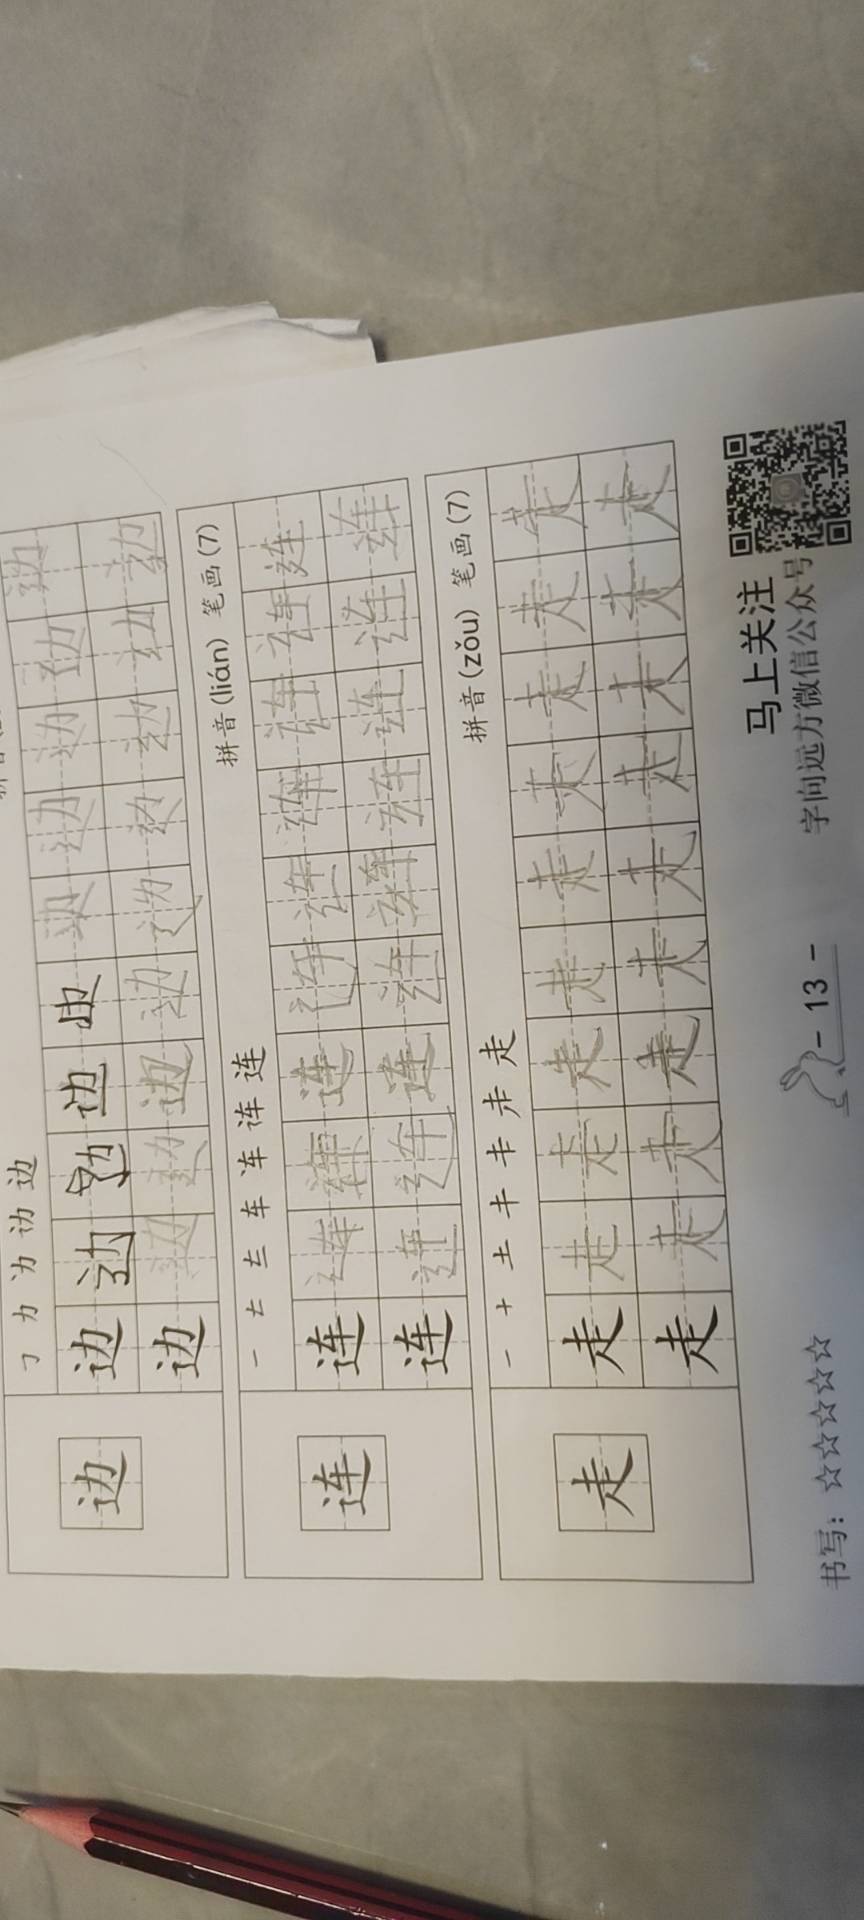 力 边
边
边 边 边 边 边 边 边 边
边 边 边 边 边 边 边 边 边 边
拼音(lián) 笔画(7)
一 车 连
连
连 连 连 连 连 连 连 连 连 连
连 连 连 连 连 连 连 连 连 连
拼音(zǒu) 笔画(7)
一 十 土 走
走
走 走 走 走 走 走 走 走 走 走
走 走 走 走 走 走 走 走 走 走
书写: ☆☆☆☆☆☆
- 13 -
马上关注
字向远方微信公众号